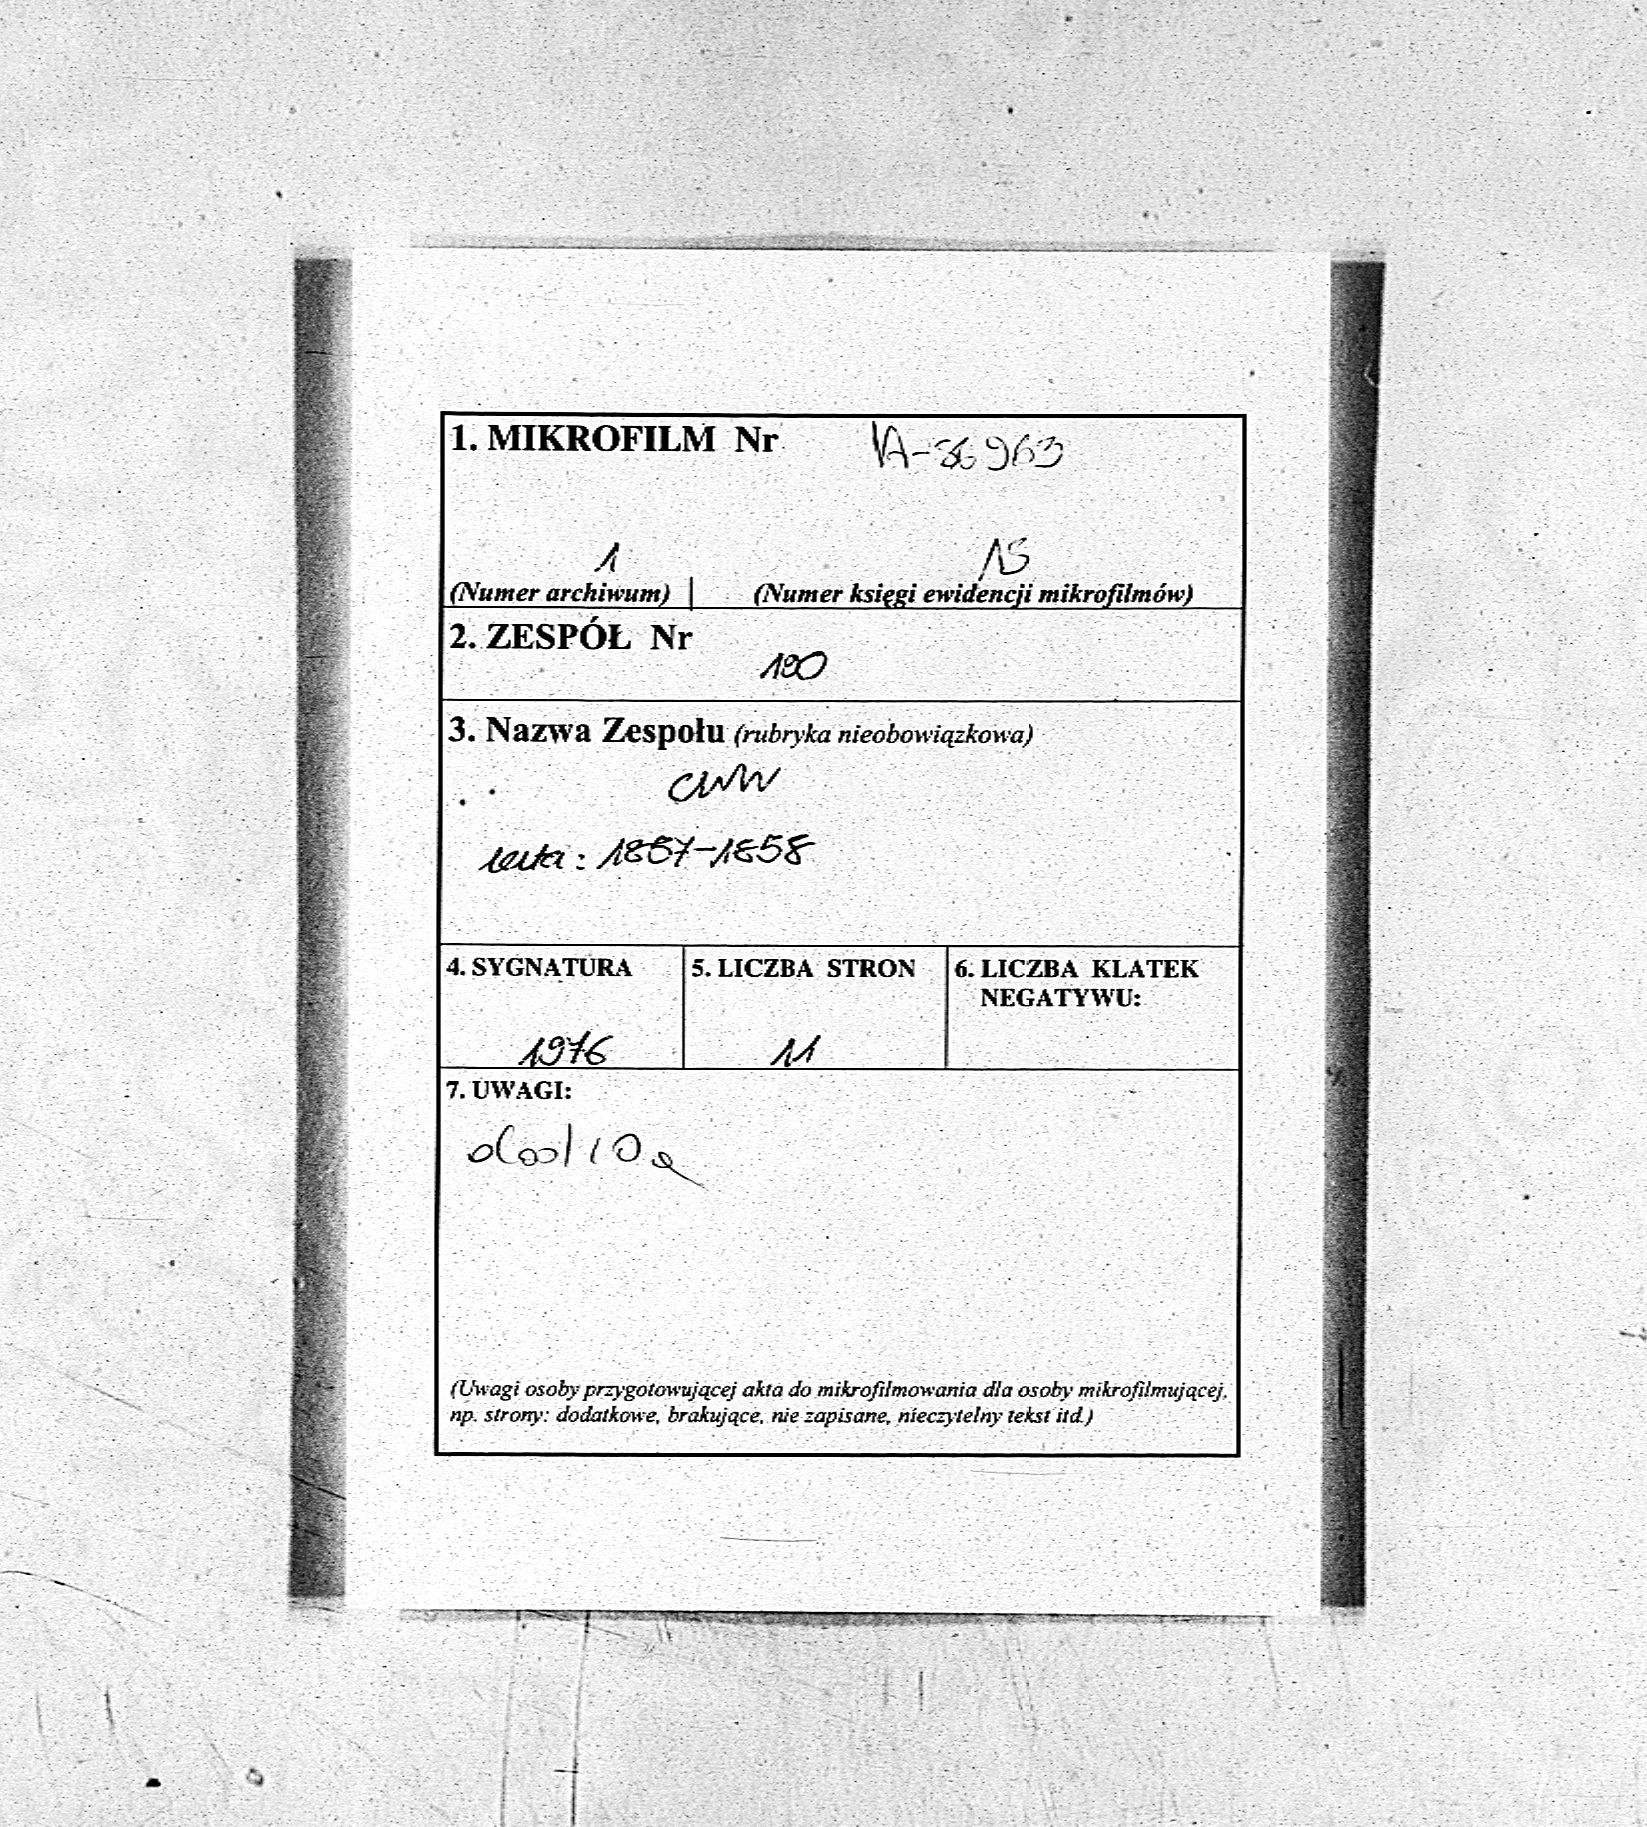 1. MIKROFILM Nr
1
15
(Numer archiwum) | (Numer księgi ewidencji mikrofilmów)
2. ZESPÓŁ Nr
190
3. Nazwa Zespołu (rubryka nieobowiązkowa)
CWW
1857-1858
4. SYGNATURA
1976
5. LICZBA STRON
11
6. LICZBA KLATEK
NEGATYWU:
7. UWAGI:
(Uwagi osoby przygotowującej akta do mikrofilmowania dla osoby mikrofilmującej,
np. strony: dodatkowe, brakujące, nie zapisane, nieczytelny tekst itd.)